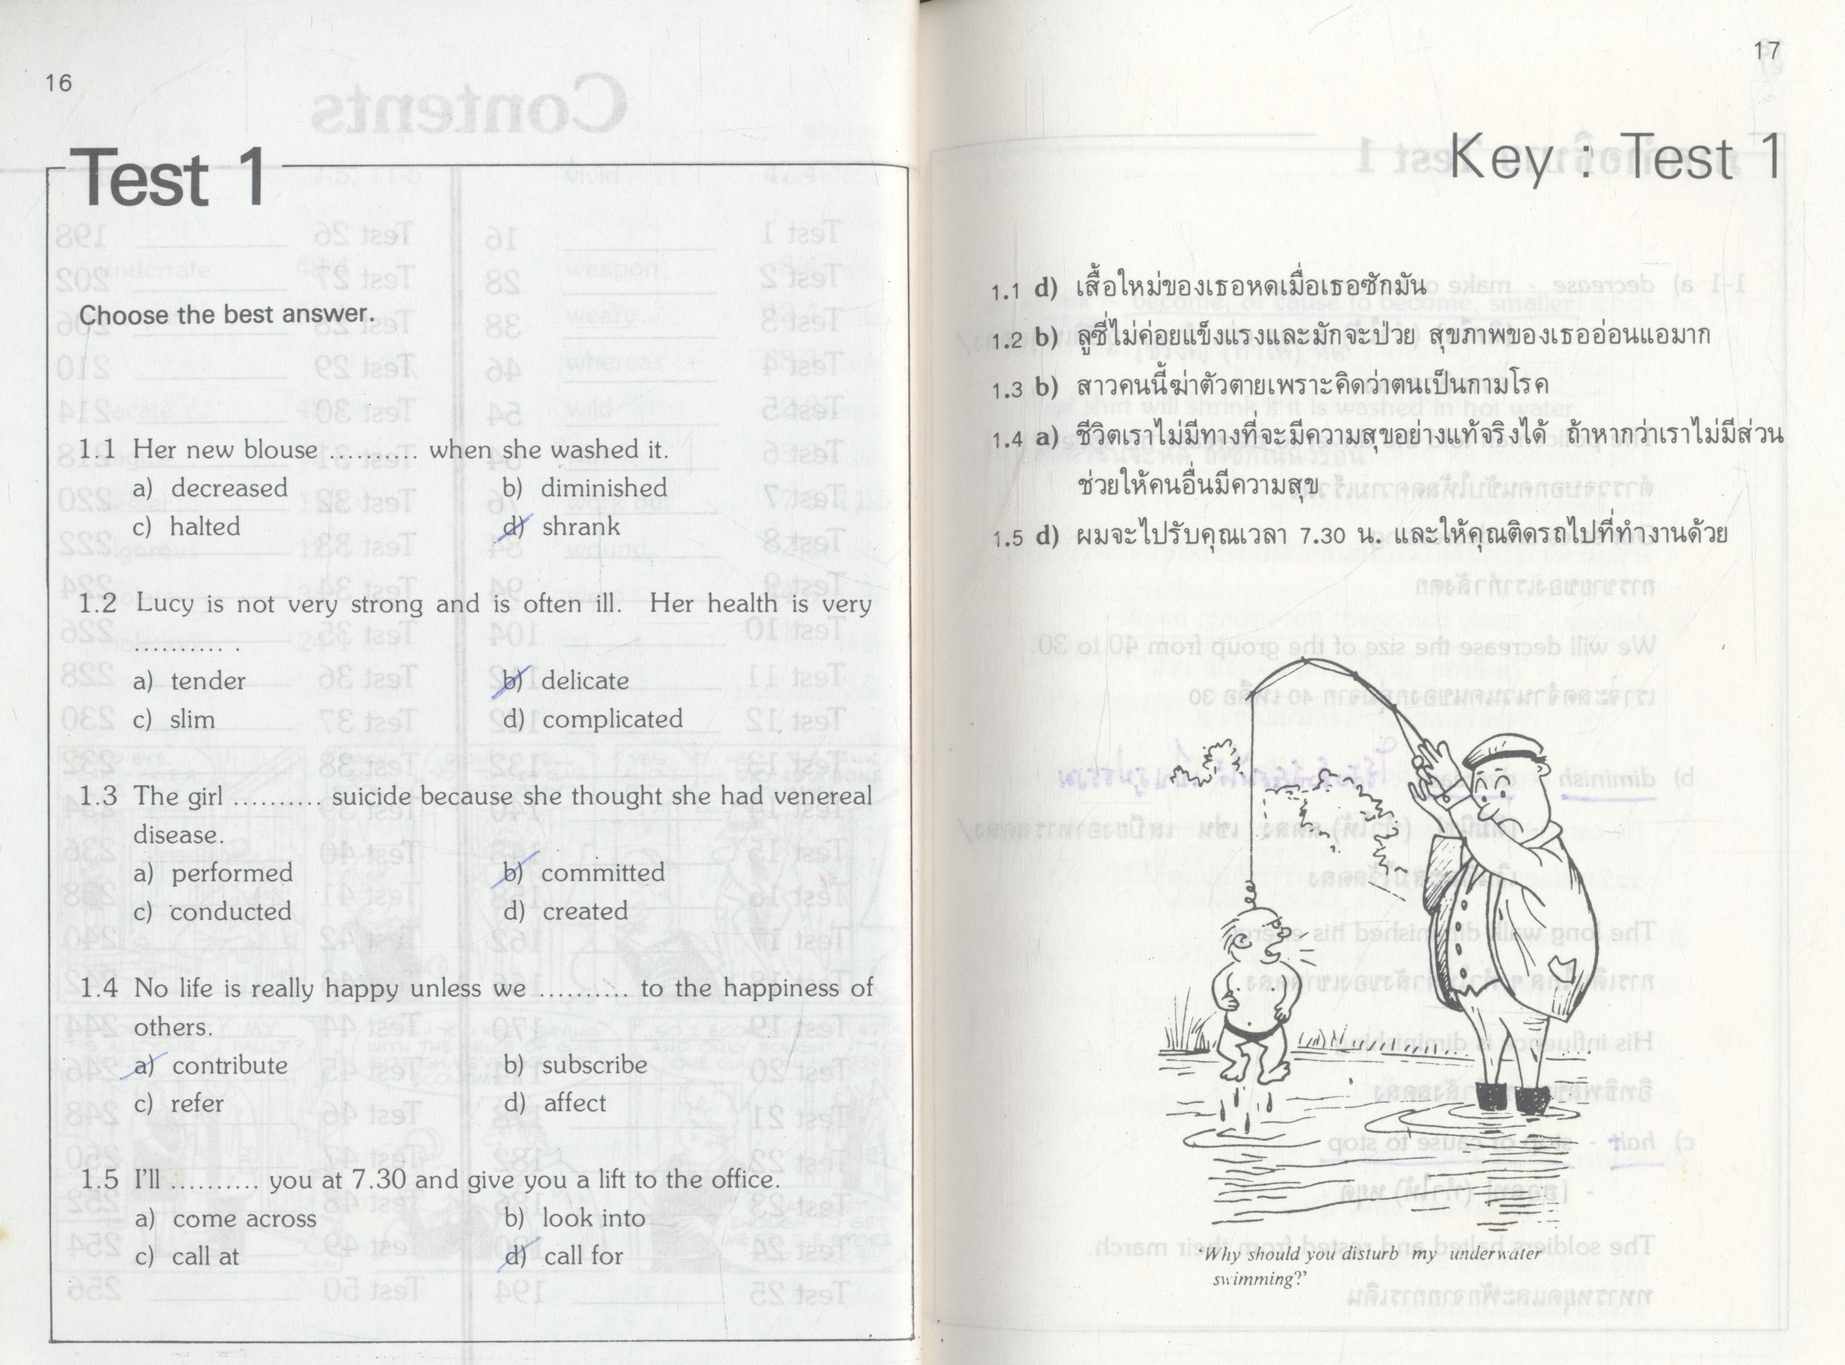 16
Test 1
Choose the best answer.
1.1 Her new blouse .......... when she washed it.
a) decreased b) diminished
c) halted d) shrank
1.2 Lucy is not very strong and is often ill. Her health is very
.......... .
a) tender b) delicate
c) slim d) complicated
1.3 The girl .......... suicide because she thought she had venereal
disease.
a) performed b) committed
c) conducted d) created
1.4 No life is really happy unless we .......... to the happiness of
others.
a) contribute b) subscribe
c) refer d) affect
1.5 I'll .......... you at 7.30 and give you a lift to the office.
a) come across b) look into
c) call at d) call for
17
Key : Test 1
1.1 d) เสื้อใหม่ของเธอหดเมื่อเธอซักมัน
1.2 b) ลูซี่ไม่ค่อยแข็งแรงและมักจะป่วย สุขภาพของเธออ่อนแอมาก
1.3 b) สาวคนนี้ฆ่าตัวตายเพราะคิดว่าตนเป็นกามโรค
1.4 a) ชีวิตเราไม่มีทางที่จะมีความสุขอย่างแท้จริงได้ ถ้าหากว่าเราไม่มีส่วน
ช่วยให้คนอื่นมีความสุข
1.5 d) ผมจะไปรับคุณเวลา 7.30 น. และให้คุณติดรถไปที่ทำงานด้วย
'Why should you disturb my underwater
swimming?'